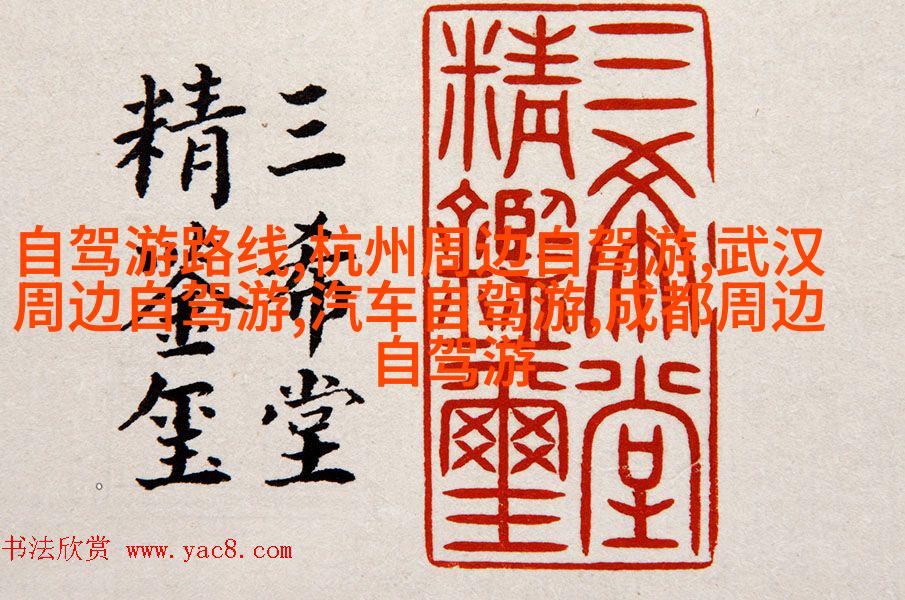 三希堂
精鑑璽
三希堂
精鉴玺
自驾游路线,杭州周边自驾游,武汉
周边自驾游,汽车自驾游,成都周边
自驾游
书法欣赏 www.yac8.com